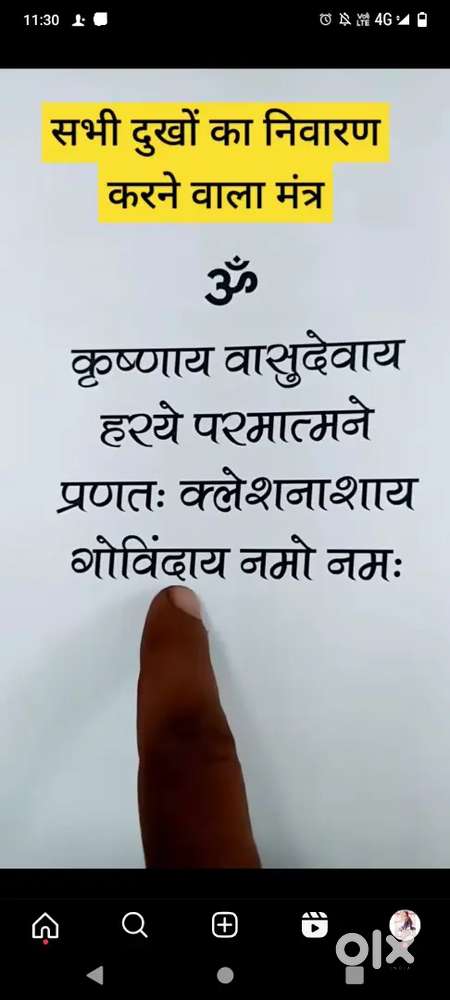 11:30
VoI) LTE 4G
सभी दुखों का निवारण
करने वाला मंत्र
ॐ
कृष्णाय वासुदेवाय
हरये परमात्मने
प्रणतः क्लेशनाशाय
गोविंदाय नमो नमः
olx
INDIA